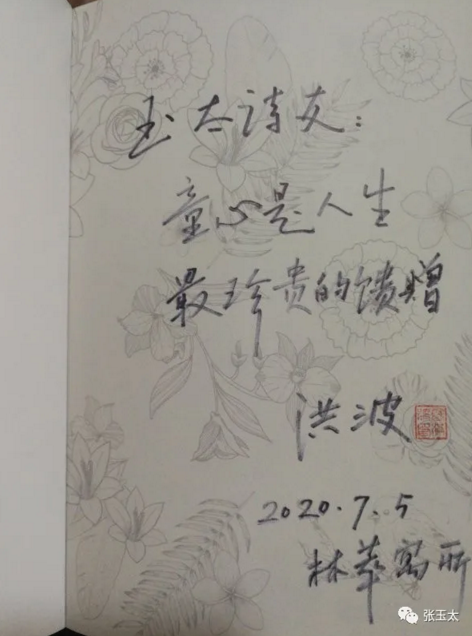 玉太诗友：
童心是人生
最珍贵的馈赠
洪波
2020.7.5
林萃寓所
张玉太